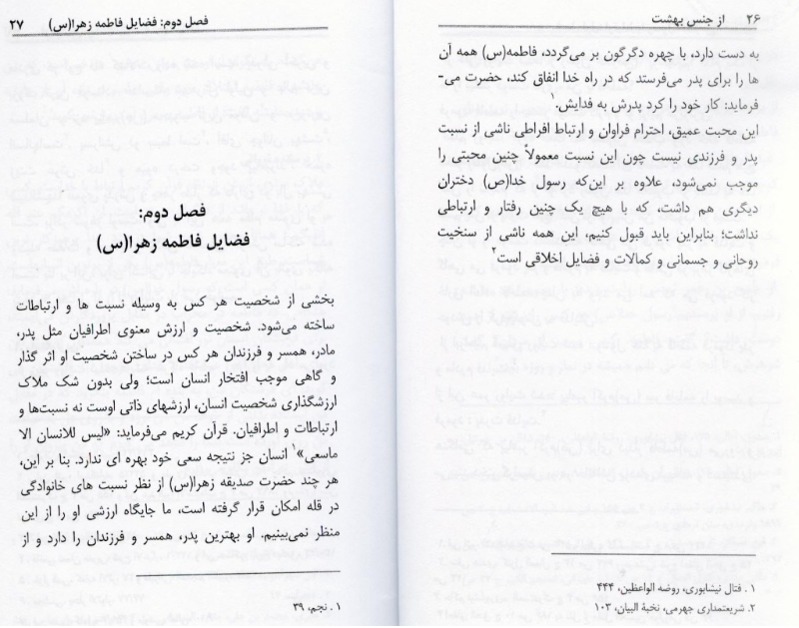 ۲۶ از جنس بهشت
به دست دارد، با چهره دگرگون بر می‌گردد، فاطمه(س) همه آن
ها را برای پدر می‌فرستد که در راه خدا انفاق کند، حضرت می-
فرماید: کار خود را کرد پدرش به فدایش.۱
این محبت عمیق، احترام فراوان و ارتباط افراطی ناشی از نسبت
پدر و فرزندی نیست چون این نسبت معمولاً چنین محبتی را
موجب نمی‌شود، علاوه بر این‌که رسول خدا(ص) دختران
دیگری هم داشت، که با هیچ یک چنین رفتار و ارتباطی
نداشت؛ بنابراین باید قبول کنیم، این همه ناشی از سنخیت
روحانی و جسمانی و کمالات و فضایل اخلاقی است۲
۱ . فتال نیشابوری، روضه الواعظین، ۴۴۴
۲ . شریعتمداری جهرمی، نخبة البیان، ۱۰۳
فصل دوم: فضایل فاطمه زهرا(س) ۲۷
فصل دوم:
فضایل فاطمه زهرا(س)
بخشی از شخصیت هر کس به وسیله نسبت ها و ارتباطات
ساخته می‌شود. شخصیت و ارزش معنوی اطرافیان مثل پدر،
مادر، همسر و فرزندان هر کس در ساختن شخصیت او اثر گذار
و گاهی موجب افتخار انسان است؛ ولی بدون شک ملاک
ارزشگذاری شخصیت انسان، ارزشهای ذاتی اوست نه نسبت‌ها و
ارتباطات و اطرافیان. قرآن کریم می‌فرماید: «لیس للانسان الا
ماسعی»۱ انسان جز نتیجه سعی خود بهره ای ندارد. بنا بر این،
هر چند حضرت صدیقه زهرا(س) از نظر نسبت های خانوادگی
در قله امکان قرار گرفته است، ما جایگاه ارزشی او را از این
منظر نمی‌بینیم. او بهترین پدر، همسر و فرزندان را دارد و از
۱ . نجم، ۳۹